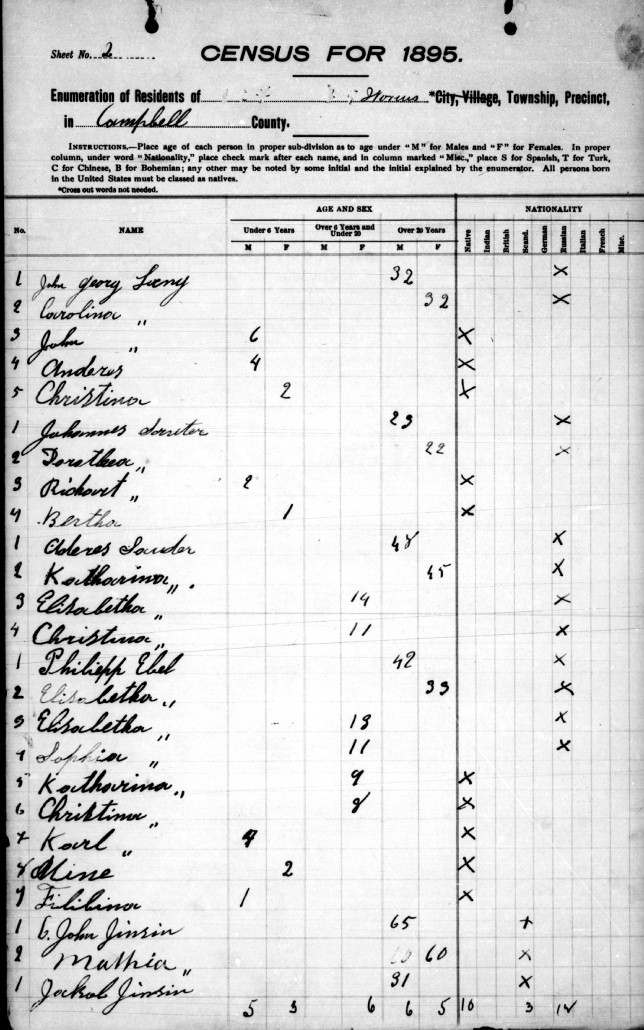 Sheet No. 2
CENSUS FOR 1895.
Enumeration of Residents of Worms *City, Village, Township, Precinct,
in Campbell County.
INSTRUCTIONS.—Place age of each person in proper sub-division as to age under "M" for Males and "F" for Females. In proper
column, under word "Nationality," place check mark after each name, and in column marked "Misc.," place S for Spanish, T for Turk,
C for Chinese, B for Bohemian; any other may be noted by some initial and the initial explained by the enumerator. All persons born
in the United States must be classed as natives.
*Cross out words not needed.
AGE AND SEX NATIONALITY
No. NAME Under 6 Years Over 6 Years and Under 20 Over 20 Years Native Indian British Scand. German Russian Italian French Misc.
M F M F M F
1 John Georg 32 X
2 Carolina " 32 X
3 John " 6 X
4 Anderes 4 X
5 Christina 2 X
1 Johannes 23 X
2 Dorothea " 22 X
3 Richart " 2 X
4 Bertha 1 X
1 Aderes Sauder 48 X
2 Katharina " 45 X
3 Elisabetha " 14 X
4 Christina " 11 X
1 Philiepp Ebel 42 X
2 Elisabetha " 33 X
3 Elisabetha " 13 X
4 Sophia " 11 X
5 Katharina " 9 X
6 Christina " 8 X
7 Karl " 4 X
8 Mine 2 X
9 Filibina 1 X
1 John Jinsin 65 X
2 Mathia " 60 X
1 Jakob Jinsin 31 X
5 3 6 6 5 10 3 12